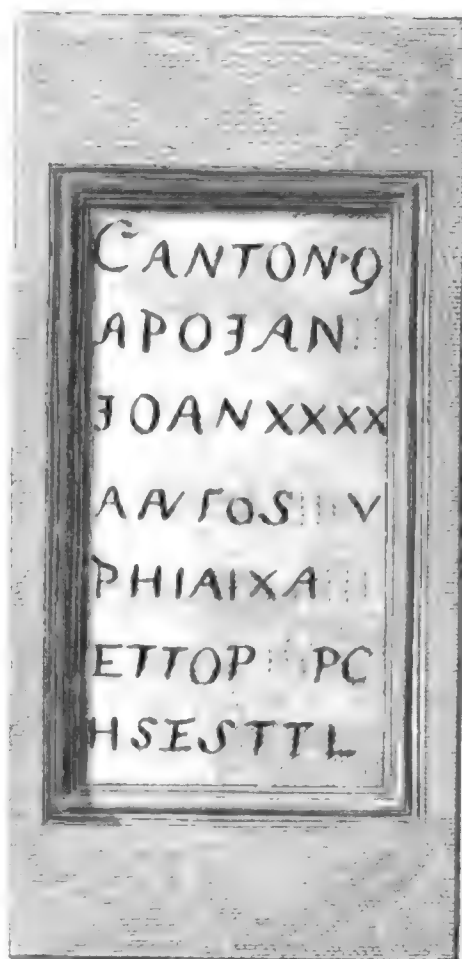 CANTON·Q
APOJAN
JOANXXXX
ANΓOS V
PHIAIXA
ETTOP PC
HSESTTL